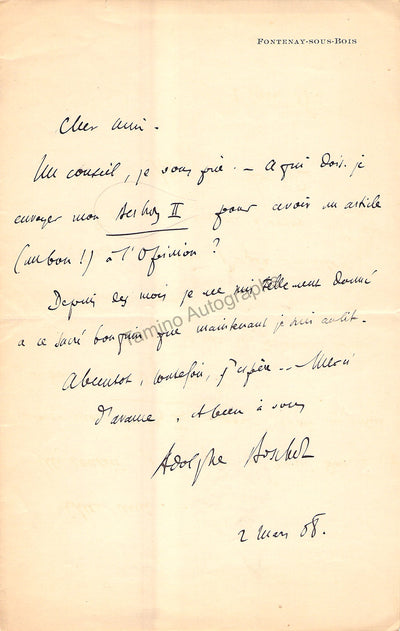 FONTENAY-SOUS-BOIS
Cher ami -
Un conseil, je vous prie. - A qui dois-je
envoyer mon Berlioz II pour avoir un article
(un bon !) à l'Opinion ?
Depuis des mois je me suis tellement donné
à ce sacré bouquin que maintenant je suis au lit.
A bientôt, toutefois, j'espère... Merci
d'avance, et bien à vous
Adolphe Boschot
2 Mars 08.
Tamino Autographs